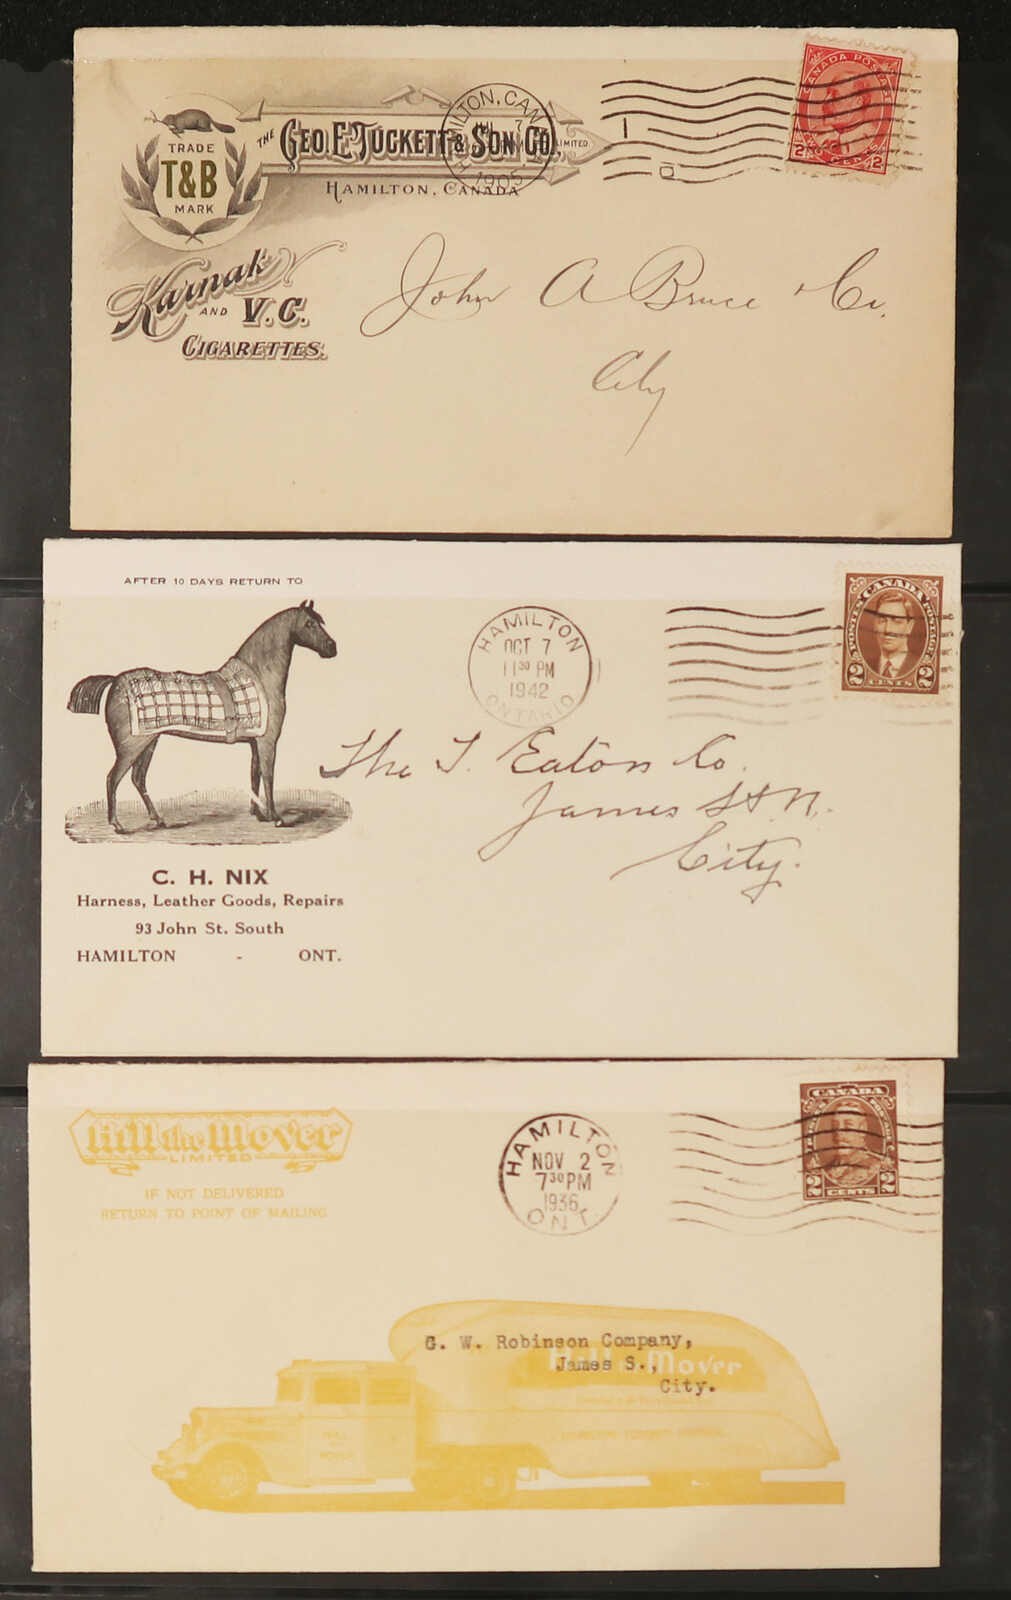 TRADE
T&B
MARK
THE GEO. E. TUCKETT & SON CO. LIMITED
HAMILTON, CANADA
Karnak
AND V.C.
CIGARETTES.
HAMILTON, CANADA
7
1905
1
CANADA POSTAGE
2 CENTS 2
John A Bruce & Co.
City
AFTER 10 DAYS RETURN TO
C. H. NIX
Harness, Leather Goods, Repairs
93 John St. South
HAMILTON - ONT.
HAMILTON
OCT 7
11 30 PM
1942
ONTARIO
POSTES CANADA POSTAGE
2 CENTS 2
The T. Eaton Co.
James St N.
City.
Hill the Mover
LIMITED
IF NOT DELIVERED
RETURN TO POINT OF MAILING
HAMILTON
NOV 2
7 30 PM
1936
ONT.
CANADA
2 CENTS 2
G. W. Robinson Company,
James S.,
City.
Hill the Mover
HILL
THE
MOVER